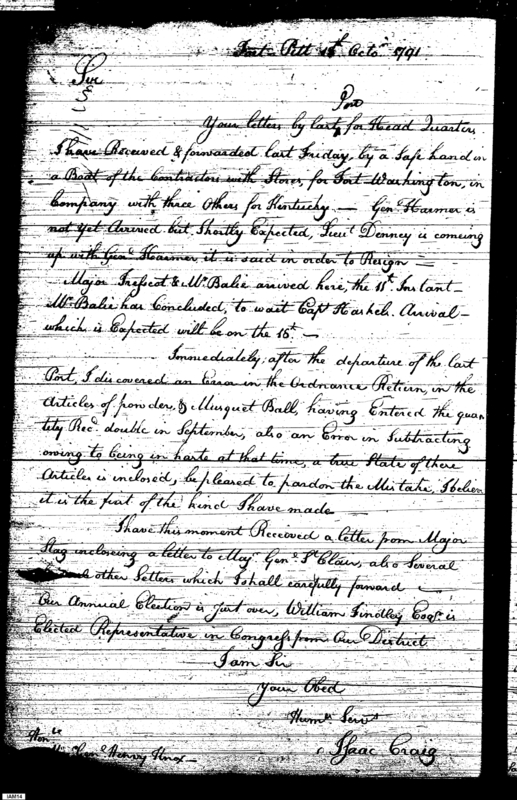 Fort Pitt 13th Octor 1791
Sir
Post
Your letters by last, for Head Quarters
I have Received & forwarded last Friday, by a Safe hand in
a Boat of the Contractors with Stores, for Fort Washington, in
Company with three Others for Kentucky — Genl Harmer is
not yet Arrived but Shortly Expected, Lieut Denney is comeing
up with Genl Harmer, it is said in order to Resign —
Major Trescot & Mr Balie arrived here, the 11th Instant
Mr Balie has Concluded, to wait Capt Haskels Arrival —
which is Expected will be on the 16th —
Immediately, after the departure of the last
Post, I discovered an Error in the Ordnance Return, in the
Articles of powder, & Musquet Ball, having Entered the quan
tity Recd double in September, also an Error in Subtracting
owing to being in haste at that time, a true State of these
Articles is inclosed, be pleased to pardon the Mistake, I believe
it is the first of the kind I have made —
I have this moment Received a letter from Major
Stag incloseing a letter to Majr Genl St Clair, also Several
other Letters which I shall carefully forward —
Our Annual Election is Just over, William Findley Esqr. is
Elected Representative in Congress from Our District
I am Sir
Your Obed
Humle Servt
Isaac Craig
Honle
Genl Henry Knox —
IAM14